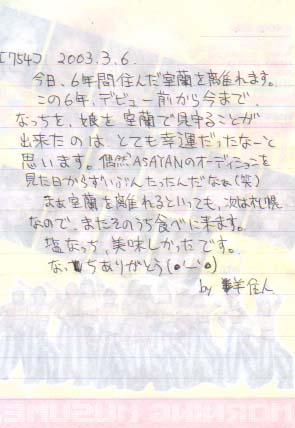 [754] 2003.3.6.
今日、6年間住んだ室蘭を離れます。
この6年、デビュー前から今まで、
なっちを、娘を室蘭で見守ることが
出来たのは、とても幸運だったなーと
思います。偶然ASAYANのオーディションを
見た日からずいぶんたったんだなぁ(笑)
まぁ室蘭を離れるといっても、次は札幌
なので、またそのうち食べに来ます。
塩なっち、美味しかったです。
なっちありがとう(●'ー'●)
by 羊住人
MORNING MUSUME